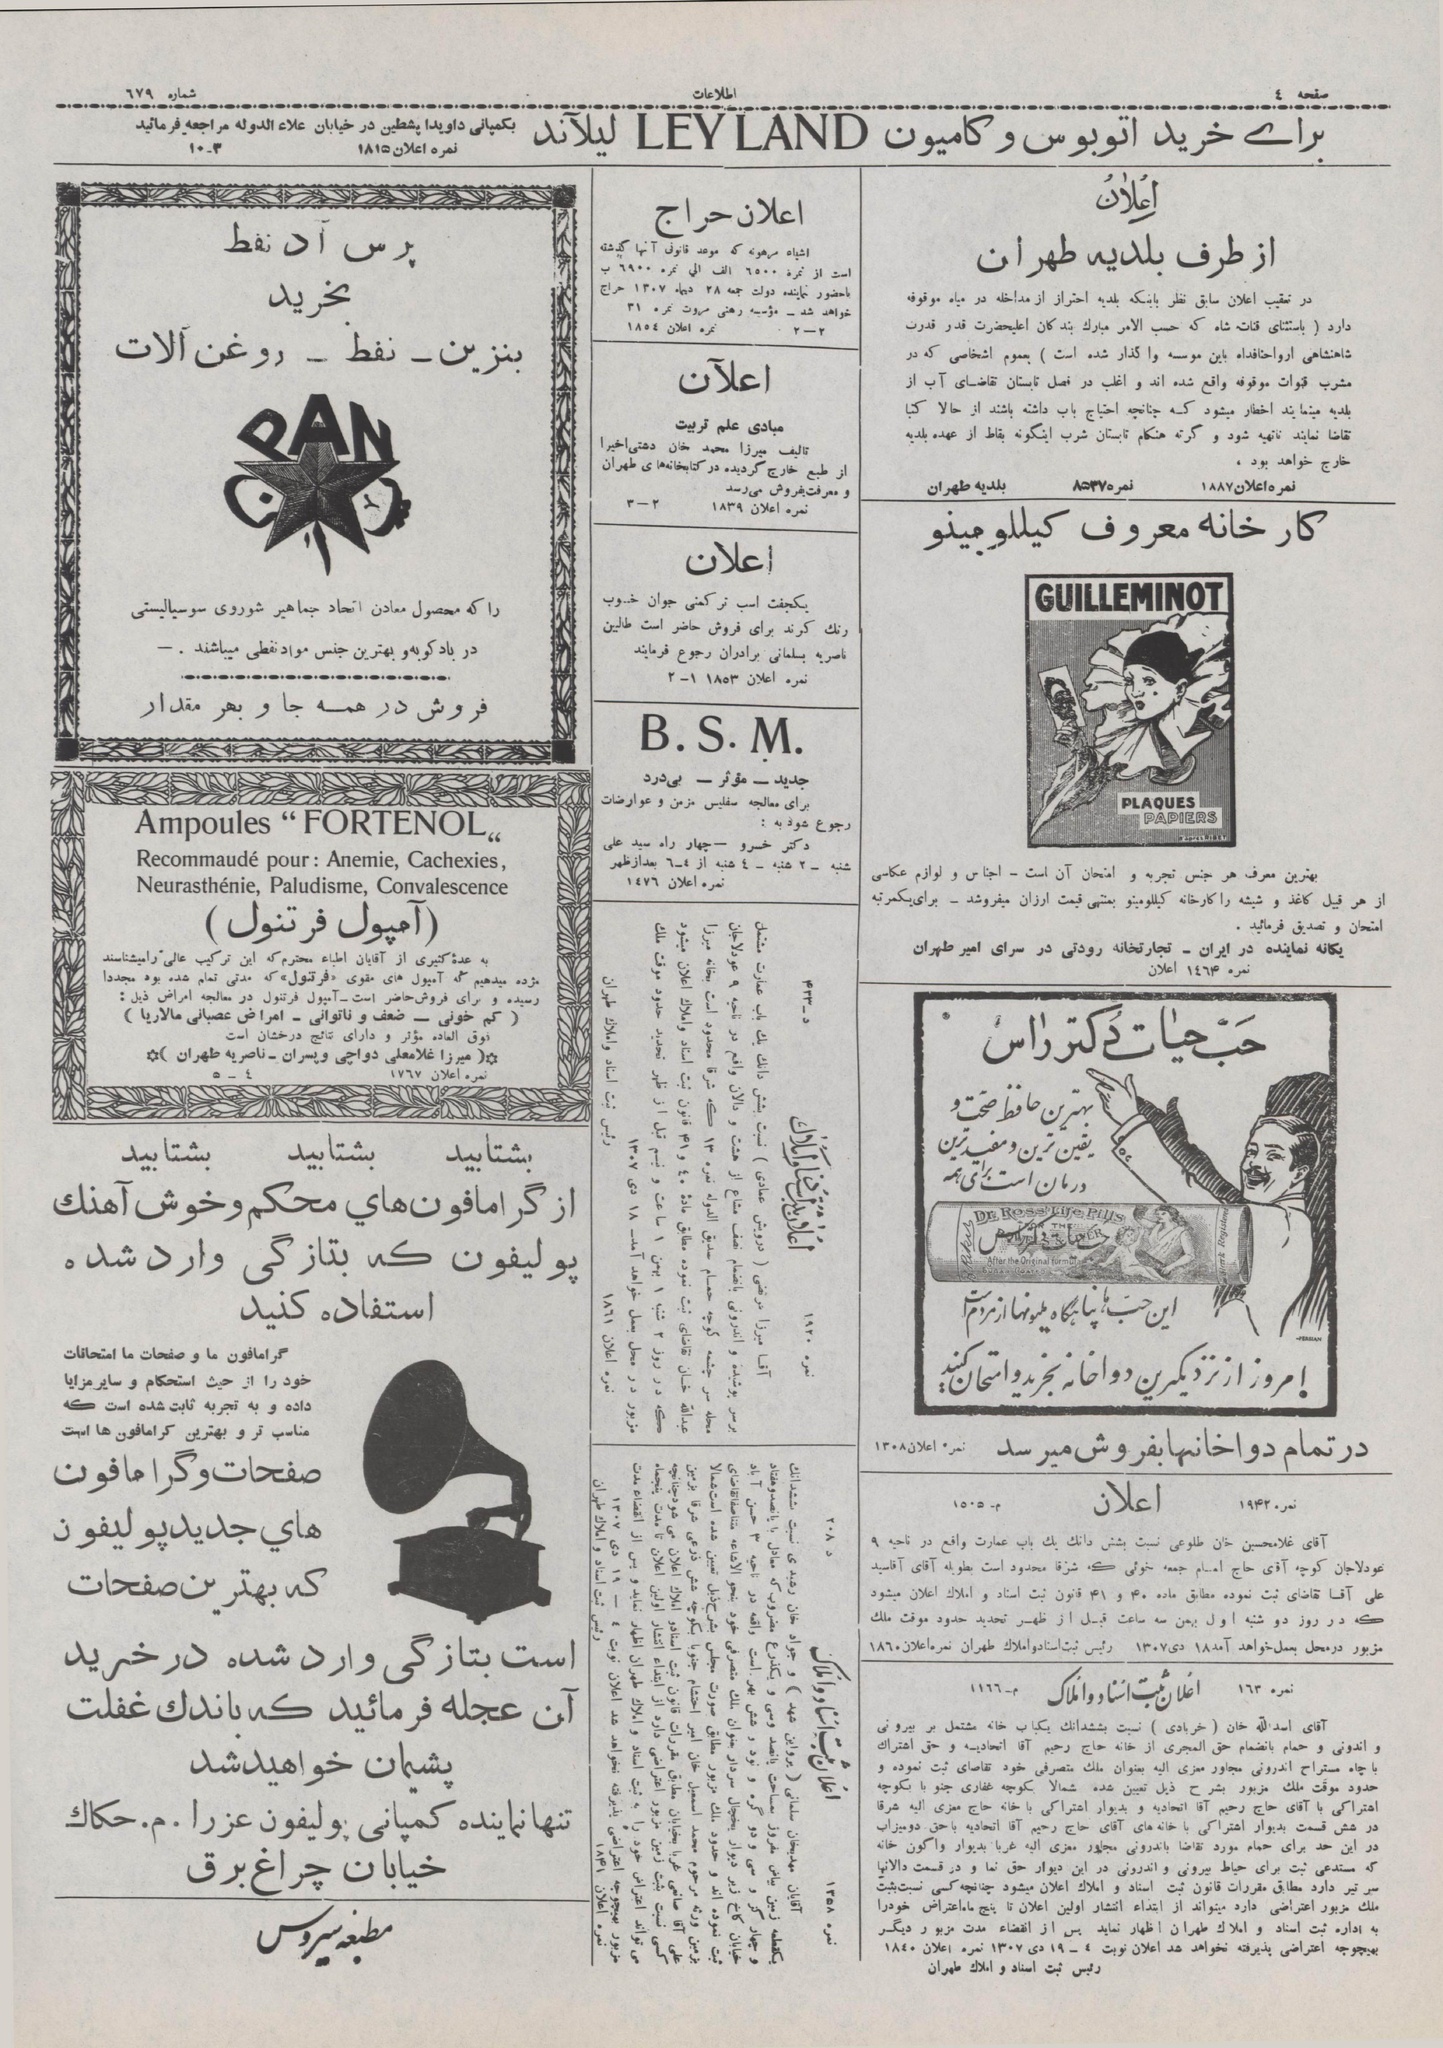 صفحه ٤
اطلاعات
شماره ٦٧٩
برای خرید اتوبوس و کامیون LEYLAND لیلاند
بکمپانی داویدا پشطین در خیابان علاء الدوله مراجعه فرمائید
نمره اعلان ١٨١٥
١٠-٣
اعلان
از طرف بلدیه طهران
در تعقیب اعلان سابق نظر باینکه بلدیه احتراز از مداخله در میاه موقوفه
دارد ( باستثنای قنات شاه که حسب الامر مبارك بندگان اعلیحضرت قدر قدرت
شاهنشاهی ارواحنافداه باین موسسه واگذار شده است ) بعموم اشخاصی که در
مشرب قنوات موقوفه واقع شده اند و اغلب در فصل تابستان تقاضای آب از
بلدیه مینمایند اخطار میشود که چنانچه احتیاج باب داشته باشند از حالا کتبا
تقاضا نمایند تاتهیه شود و گرنه هنگام تابستان شرب اینگونه نقاط از عهده بلدیه
خارج خواهد بود .
نمره اعلان ١٨٨٧ نمره ٨٥٣٧ بلدیه طهران
کارخانه معروف کیللومینو
GUILLEMINOT
PLAQUES
PAPIERS
بهترین معرف هر جنس تجربه و امتحان آن است - اجناس و لوازم عکاسی
از هر قبیل کاغذ و شیشه را کارخانه کیللومینو بمنتهی قیمت ارزان میفروشد - برای یکمرتبه
امتحان و تصدیق فرمائید .
یگانه نماینده در ایران - تجارتخانه رودتی در سرای امیر طهران
نمره ١٤٦٤ اعلان
حب حیات دکتر راس
بهترین حافظ صحت و
یقین ترین و مفیدترین
درمان است برای همه
Dr Ross' Life Pills
After the Original formula
این حب ها پناهگاه ملیونها از مردم است
امروز از نزدیکترین دواخانه بخرید و امتحان کنید
PERSIAN
در تمام دواخانها بفروش میرسد نمره اعلان ١٣٠٨
نمره ١٩٤٢ اعلان م- ١٥٠٥
آقای غلامحسین خان طلوعی نسبت بشش دانك یك باب عمارت واقع در ناحیه ٩
عودلاجان کوچه آقای حاج امام جمعه خوئی که شرقا محدود است بطویله آقای آقاسید
علی آقا تقاضای ثبت نموده مطابق ماده ٤٠ و ٤١ قانون ثبت اسناد و املاك اعلان میشود
که در روز دو شنبه اول بهمن سه ساعت قبل از ظهر تحدید حدود موقت ملك
مزبور درمحل بعمل خواهد آمد ١٨ دی ١٣٠٧ رئیس ثبت اسناد و املاك طهران نمره اعلان ١٨٦٠
نمره ١٦٣ اعلان ثبت اسناد و املاک م- ١١٦٦
آقای اسدالله خان (خربادی) نسبت بششدانك یکباب خانه مشتمل بر بیرونی
و اندونی و حمام بانضمام حق المجری از خانه حاج رحیم آقا اتحادیه و حق اشتراك
با چاه مستراح اندرونی مجاور معزی الیه بعنوان ملك متصرفی خود تقاضای ثبت نموده و
حدود موقت ملك مزبور بشرح ذیل تعیین شده شمالا بکوچه غفاری جنو با بکوچه
اشتراکی با آقای حاج رحیم آقا اتحادیه و بدیوار اشتراکی با خانه حاج معزی الیه شرقا
در شش قسمت بدیوار اشتراکی با خانه های آقای حاج رحیم آقا اتحادیه باحق دومیزاب
در این حد برای حمام مورد تقاضا باندرونی مجاور معزی الیه غربا بدیوار واگون خانه
که مستدعی ثبت برای حیاط بیرونی و اندرونی در این دیوار حق نما و در قسمت دالانها
سر تیر دارد مطابق مقررات قانون ثبت اسناد و املاك اعلان میشود چنانچه کسی نسبت بثبت
ملك مزبور اعتراضی دارد میتواند از ابتداء انتشار اولین اعلان تا پنج ماه اعتراض خودرا
به اداره ثبت اسناد و املاك طهران اظهار نماید پس از انقضاء مدت مزبور دیگر
بهیچوجه اعتراضی پذیرفته نخواهد شد اعلان نوبت ٤ - ١٩ دی ١٣٠٧ نمره اعلان ١٨٤٠
رئیس ثبت اسناد و املاك طهران
اعلان حراج
اشیاء مرهونه که موعد قانونی آنها گذشته
است از نمره ٦٥٠٠ الف الی نمره ٦٩٠٠ ب
باحضور نماینده دولت جمعه ٢٨ دیماه ١٣٠٧ حراج
خواهد شد - مؤسسه رهنی مروت نمره ٣١
٢-٢ نمره اعلان ١٨٥٤
اعلآن
مبادی علم تربیت
تالیف میرزا محمد خان دشتی اخیرا
از طبع خارج گردیده در کتابخانه های طهران
و معرفت بفروش می رسد
نمره اعلان ١٨٣٩ ٢-٣
اعلان
یکجفت اسب ترکمنی جوان خوب
رنك کرند برای فروش حاضر است طالبین
ناصریه بسلمانی برادران رجوع فرمایند
نمره اعلان ١٨٥٣ ١-٢
B. S. M.
جدید - مؤثر - بی درد
برای معالجه سفلیس مزمن و عوارضات
رجوع شود به :
دکتر خسرو - چهار راه سید علی
شنبه - ٢ شنبه - ٤ شنبه از ٤-٦ بعدازظهر
نمره اعلان ١٤٧٦
د-٤٣٣ اعلان ثبت اسناد و املاک نمره ١٩٢٠
آقا میرزا مرتضی ( درویش عمادی ) نسبت بشش دانك یك باب عمارت مشتمل
برسر پوشیده و اندرونی بانضمام نصف مشاع از هشت و دالان واقع در ناحیه ٩ عودلاجان
محله سر چشمه کوچه حمام صدیق الدوله نمره ١٣ که شرقا محدود است بخانه میرزا
عبدالله خان تقاضای ثبت نموده مطابق مادۀ ٤٠ و ٤١ قانون ثبت اسناد واملاك اعلان میشود
که در روز ٢ شنبه ١ بهمن ١ ساعت و نیم قبل از ظهر تحدید حدود موقت ملك
مزبور در محل بعمل خواهد آمد ـ ١٨ دی ١٣٠٧
نمره اعلان ١٨٦١ رئیس ثبت اسناد واملاك طهران
د ٢٠٨ اعلان ثبت اسناد و املاک نمره ١٣٥٨
پرس آذ نفط
بخرید
بنزین - نفط - روغن آلات
PAN
را که محصول معادن اتحاد جماهیر شوروی سوسیالیستی
در بادکوبه و بهترین جنس مواد نفطی میباشند . -
فروش در همه جا و بهر مقدار
Ampoules “FORTENOL„
Recommaudé pour: Anemie, Cachexies,
Neurasthénie, Paludisme, Convalescence
(آمپول فرتنول)
به عدۀ کثیری از آقایان اطباء محترم که این ترکیب عالی را میشناسند
مژده میدهیم که آمپول های مقوی «فرتنول» که مدتی تمام شده بود مجددا
رسیده و برای فروش حاضر است - آمپول فرتنول در معالجه امراض ذیل :
( کم خونی - ضعف و ناتوانی - امراض عصبانی مالاریا )
فوق العاده مؤثر و دارای نتایج درخشان است
( میرزا غلامعلی دواچی و پسران - ناصریه طهران )
نمره اعلان ١٧٦٧ ٤-٥
بشتابید بشتابید بشتابید
از گرامافون های محکم و خوش آهنك
پولیفون که بتازگی وارد شده
استفاده کنید
گرامافون ما و صفحات ما امتحانات
خود را از حیث استحکام و سایر مزایا
داده و به تجربه ثابت شده است که
مناسب تر و بهترین گرامافون ها است
صفحات و گرامافون
های جدید پولیفون
که بهترین صفحات
است بتازگی وارد شده در خرید
آن عجله فرمائید که باندك غفلت
پشیمان خواهید شد
تنها نماینده کمپانی پولیفون عزرا . م. حکاك
خیابان چراغ برق
مطبعه سیروس